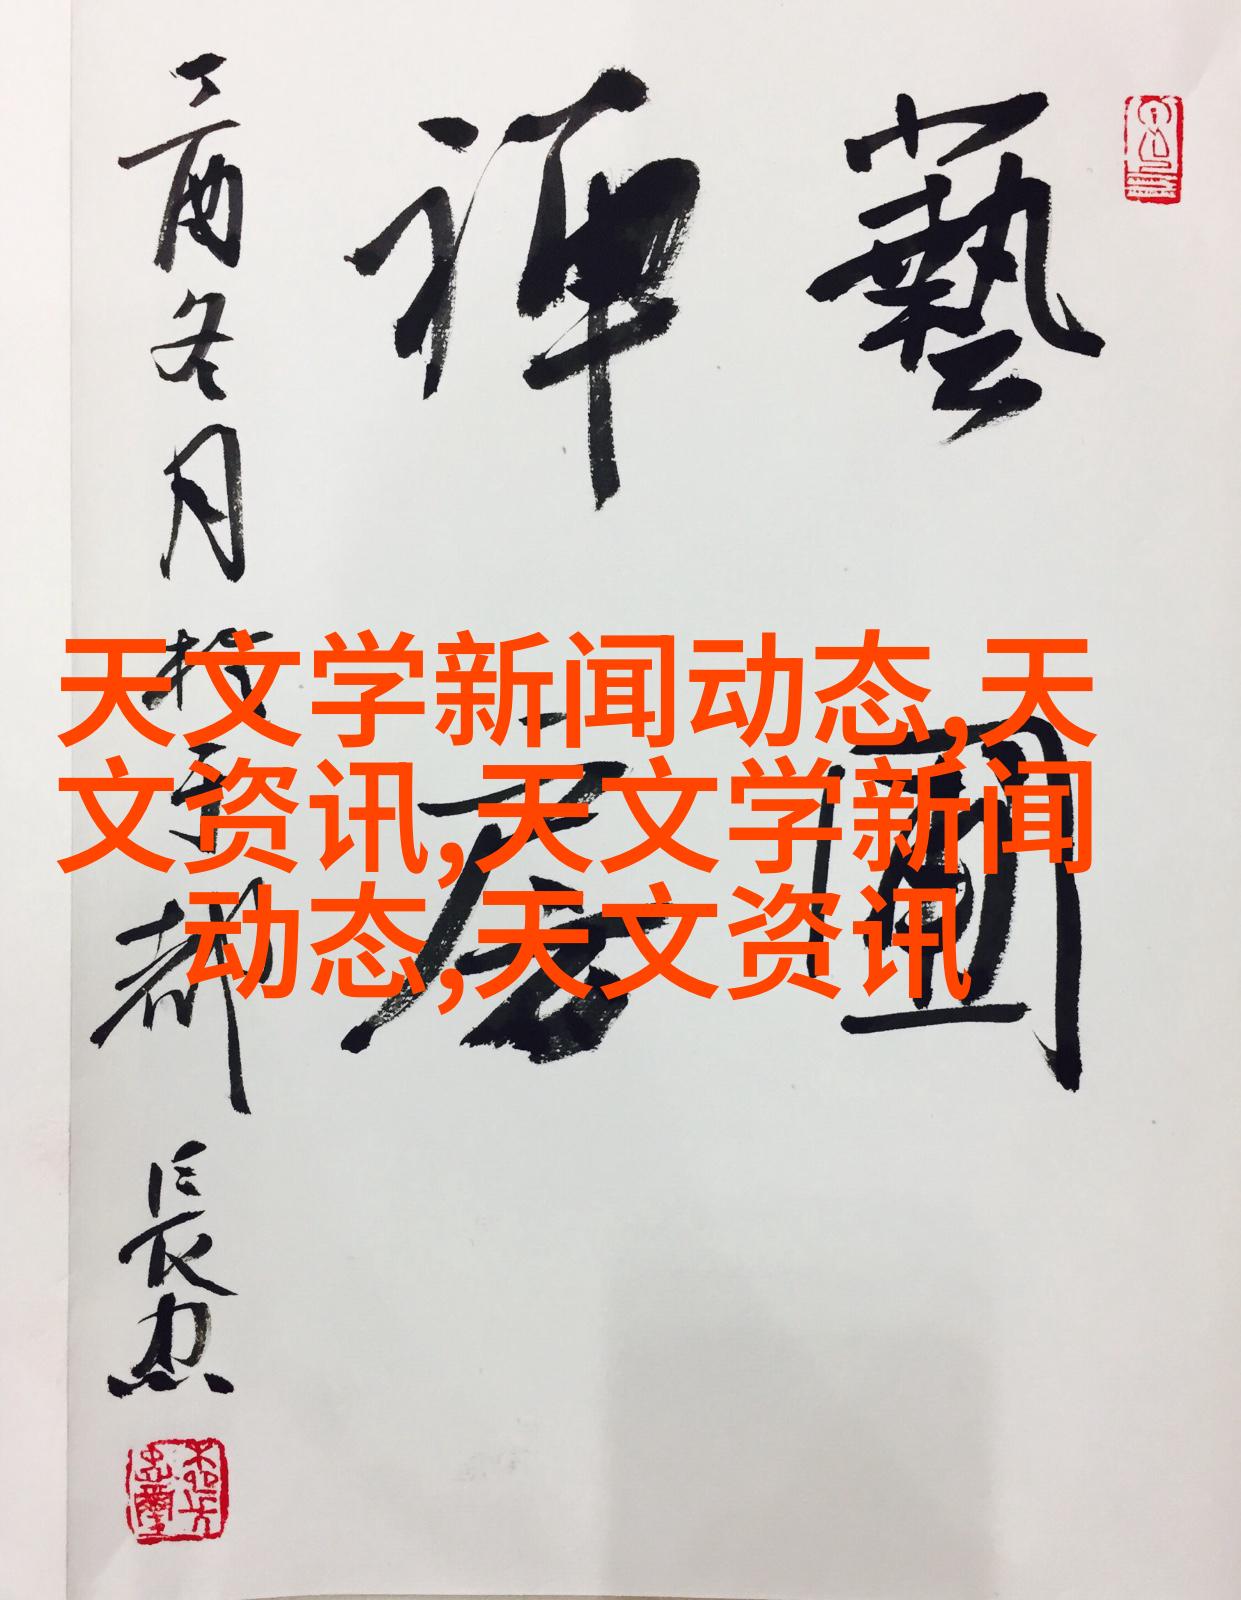 藝圃
禅唐
丁酉冬月於京都
長忠
天文学新闻动态,天
文资讯,天文学新闻
动态,天文资讯